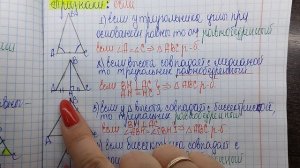 Признаки: если
1) если у треугольника углы при
основании равны то он равнобедренный
если ∠A=∠C ⇒ △ABC р-б
2) если высота совпадает с медианой
то треугольник равнобедренный
если BH ⊥ AC
AH = HC ⇒ △ABC р-б
3) если у △ высота совпадает с биссектрисой,
то треугольник равнобедренный
если BH ⊥ AC
⇒ △ABC р-б
4) если
совпадает с